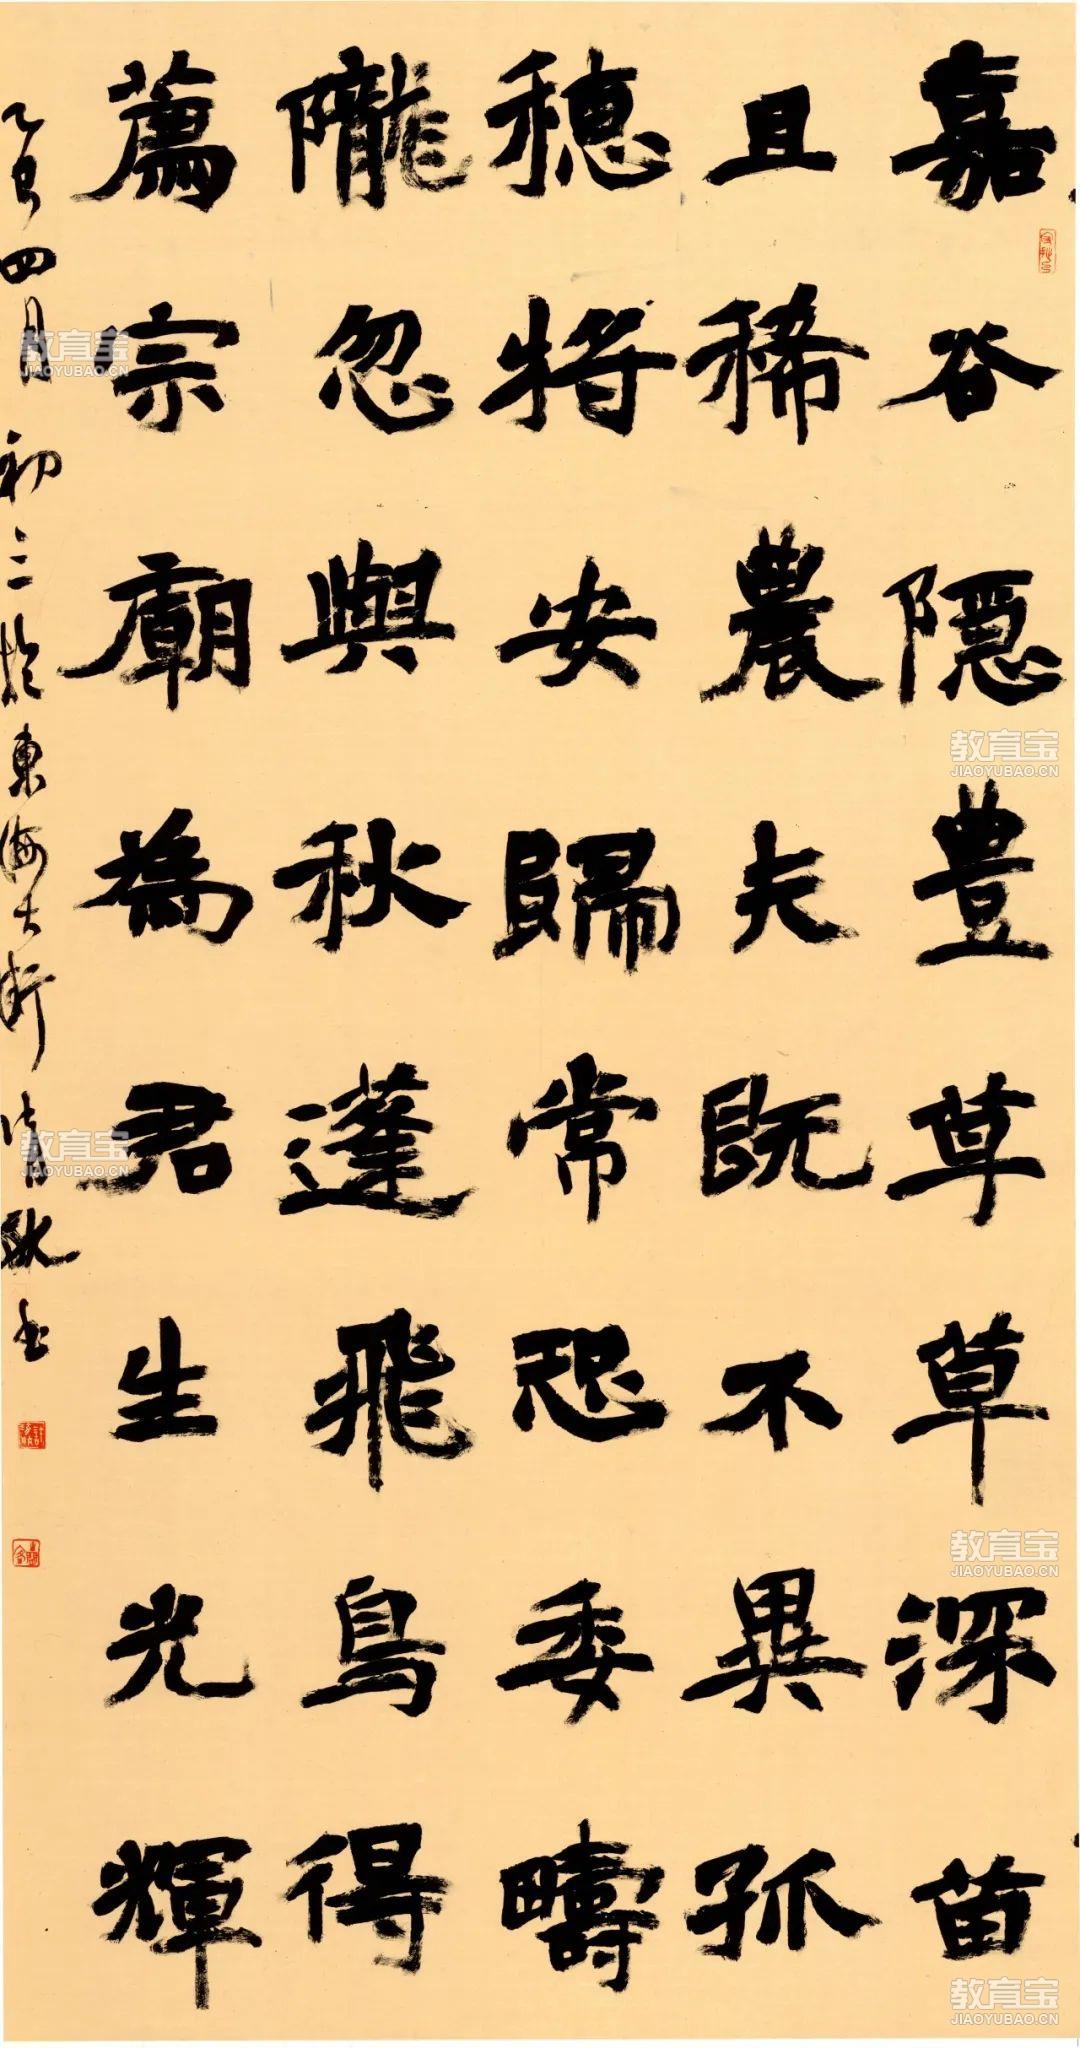 嘉谷隱豊草草深苗
且稀農夫既不異孤
穗將安歸常恐委疇
隴忽與秋蓬飛鳥得
薦宗廟為君生光輝
乙巳四月初三於東海
教育宝
JIAOYUBAO.CN
教育宝
JIAOYUBAO.CN
教育宝
JIAOYUBAO.CN
教育宝
JIAOYUBAO.CN
教育宝
JIAOYUBAO.CN